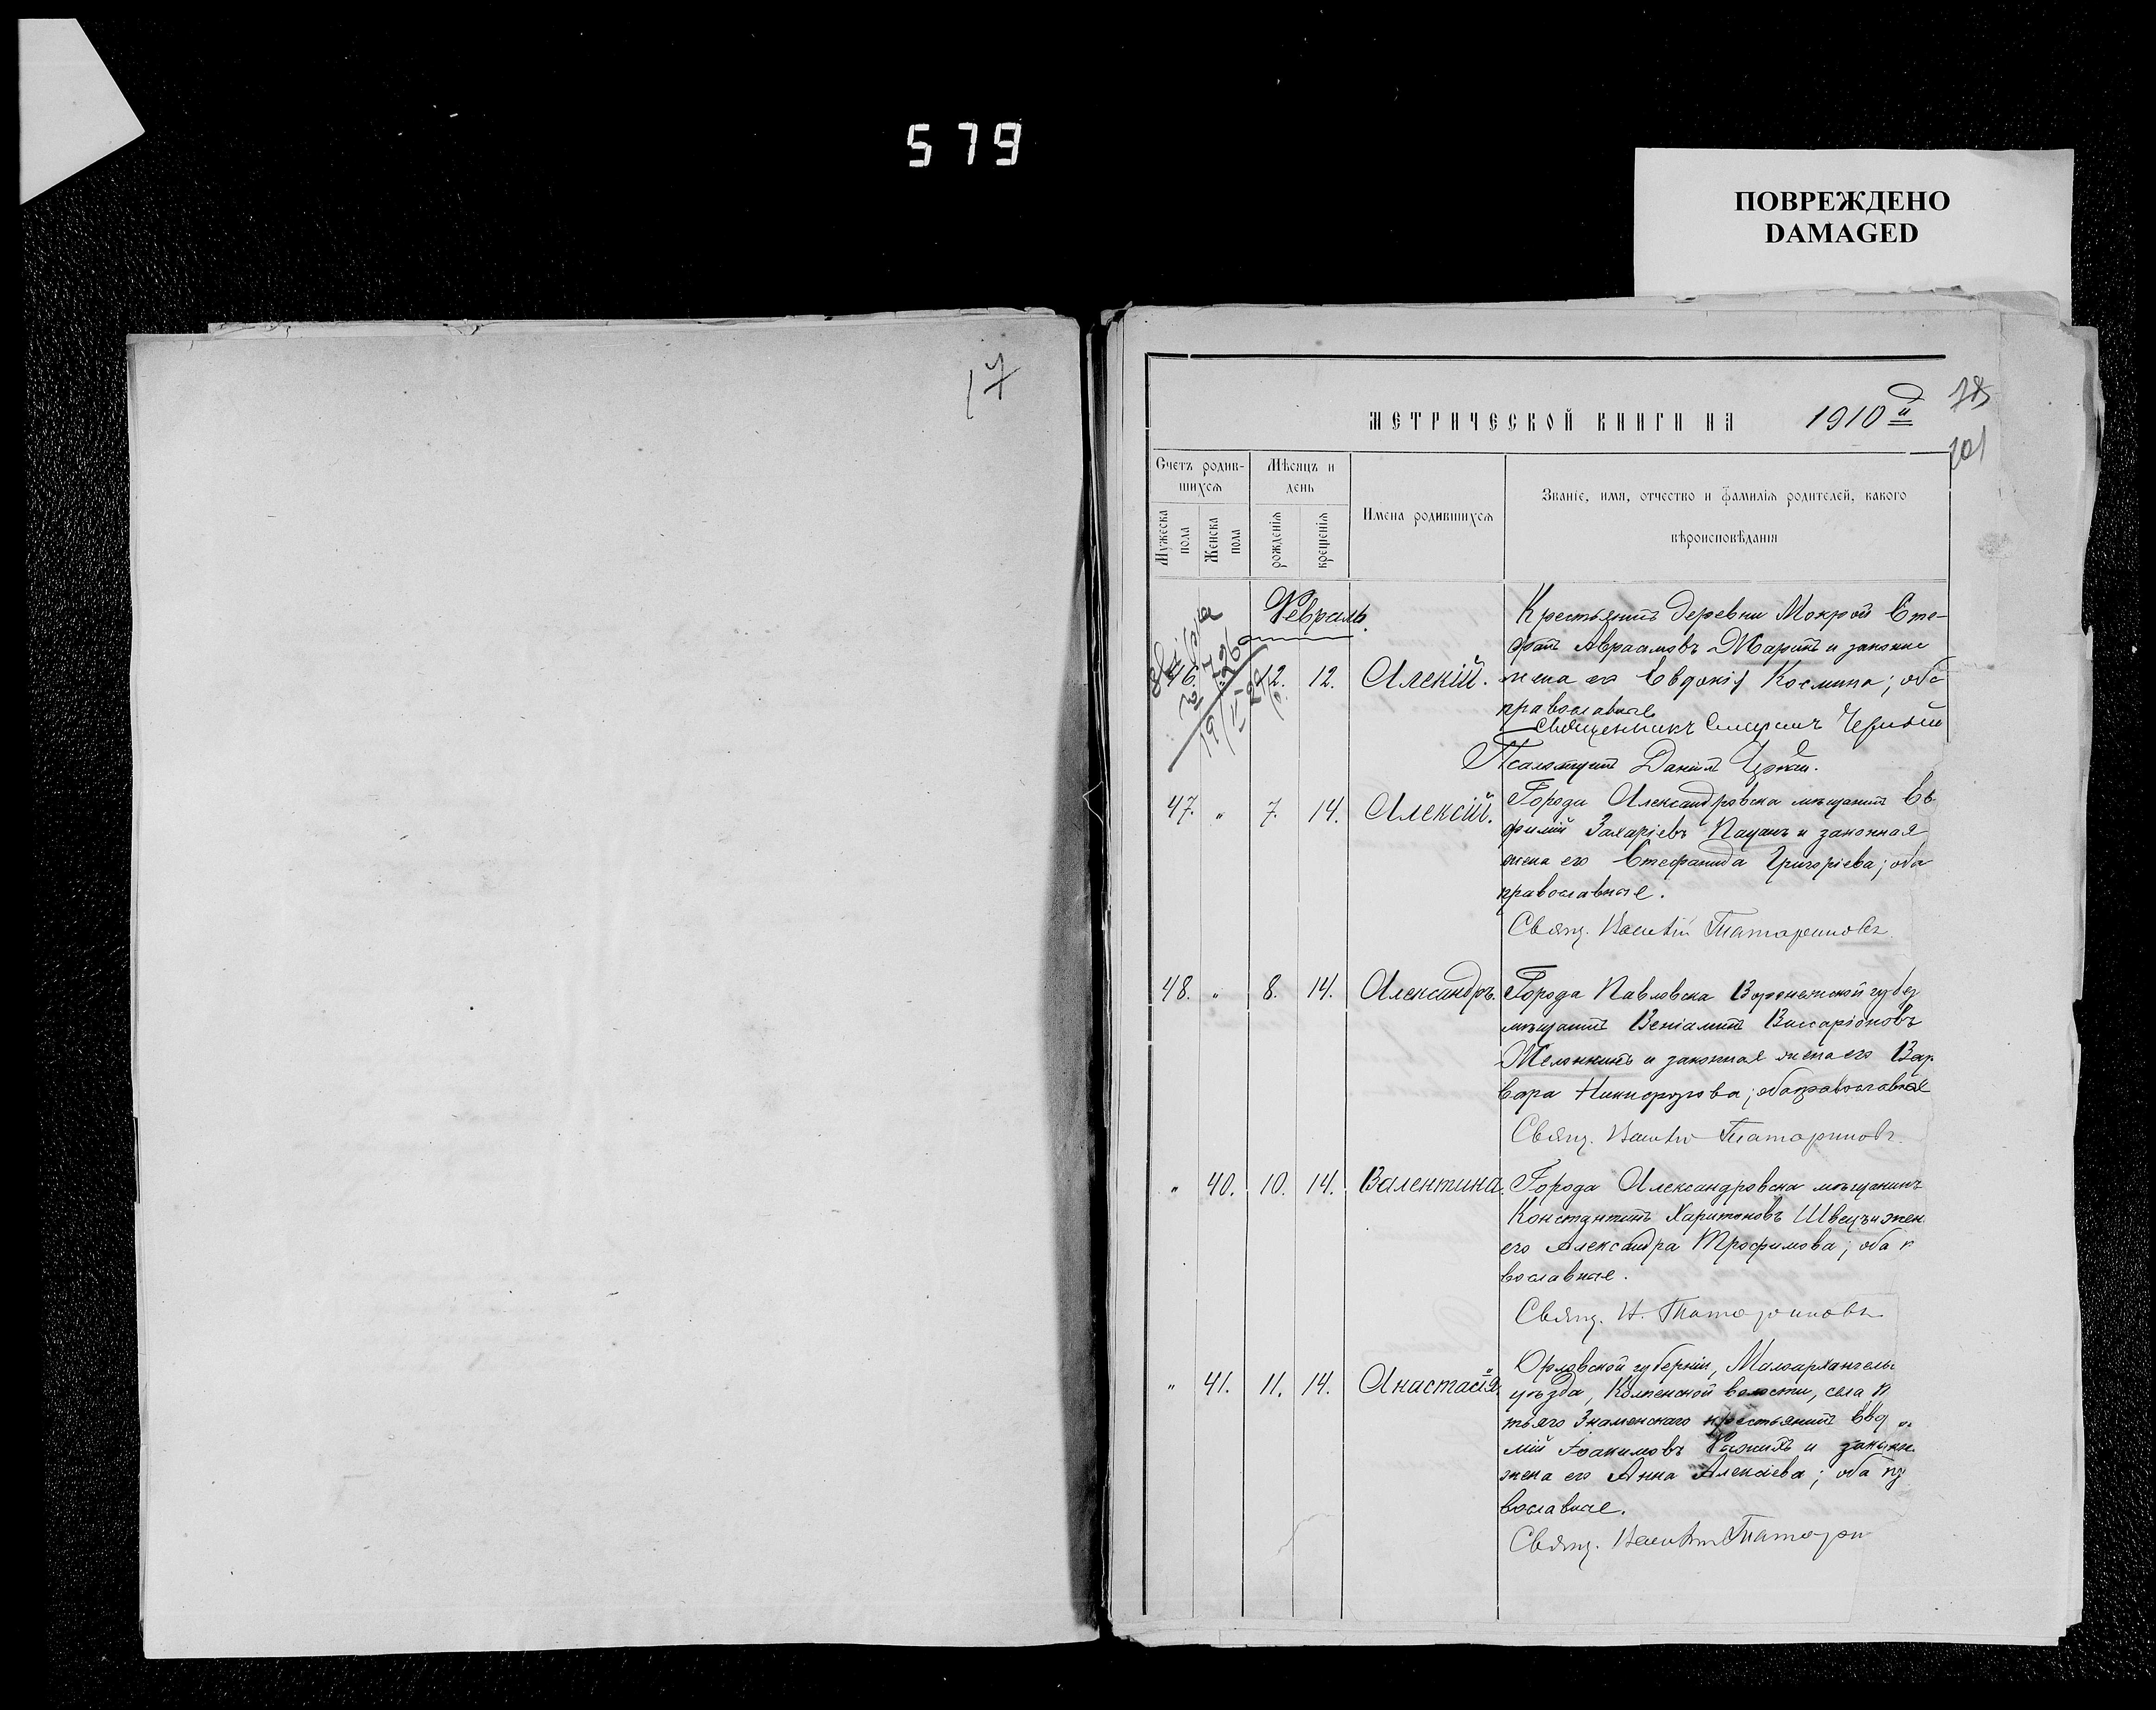 579
ПОВРЕЖДЕНО
DAMAGED
17
МЕТРИЧЕСКОЙ КНИГИ НА 1910й
101
Счетъ родившихся
Мѣсяцъ и день
Имена родившихся
Званіе, имя, отчество и фамилія родителей, какого вѣроисповѣданія
Мужеска пола
Женска пола
рожденія
крещенія
Февраль.
Крестьянинъ деревни Мокрой Сте-
фанъ Авраамовъ и законн
46. 12. 12. Алексій. жена его Евдокія Космина; оба
православные
Священникъ Черный
Псаломщикъ Даніилъ
47. " 7. 14. Алексій. Города Александровска мѣщанинъ Ев
фимій Захаріевъ Пацанъ и законная
жена его Стефанида Григоріева; оба
православные.
Свящ. Татариновъ
48. " 8. 14. Александръ. Города Павловска Воронежской губер
мѣщанинъ Веніаминъ Виссаріоновъ
и законная жена его Вар
вара Никифорова; оба православные
Свящ. Татариновъ
" 40. 10. 14. Валентина. Города Александровска мѣщанинъ
Константинъ Харитоновъ Швецъ и жен
его Александра Трофимова; оба п
вославные.
Свящ. Татариновъ
" 41. 11. 14. Анастасія. Орловской губерніи, Малоархангель
уѣзда, волости, села
Знаменскаго крестьянинъ Евд
Іоакимовъ и законн
жена его Анна Алексіева; оба пр
вославные.
Свящ. Татарин